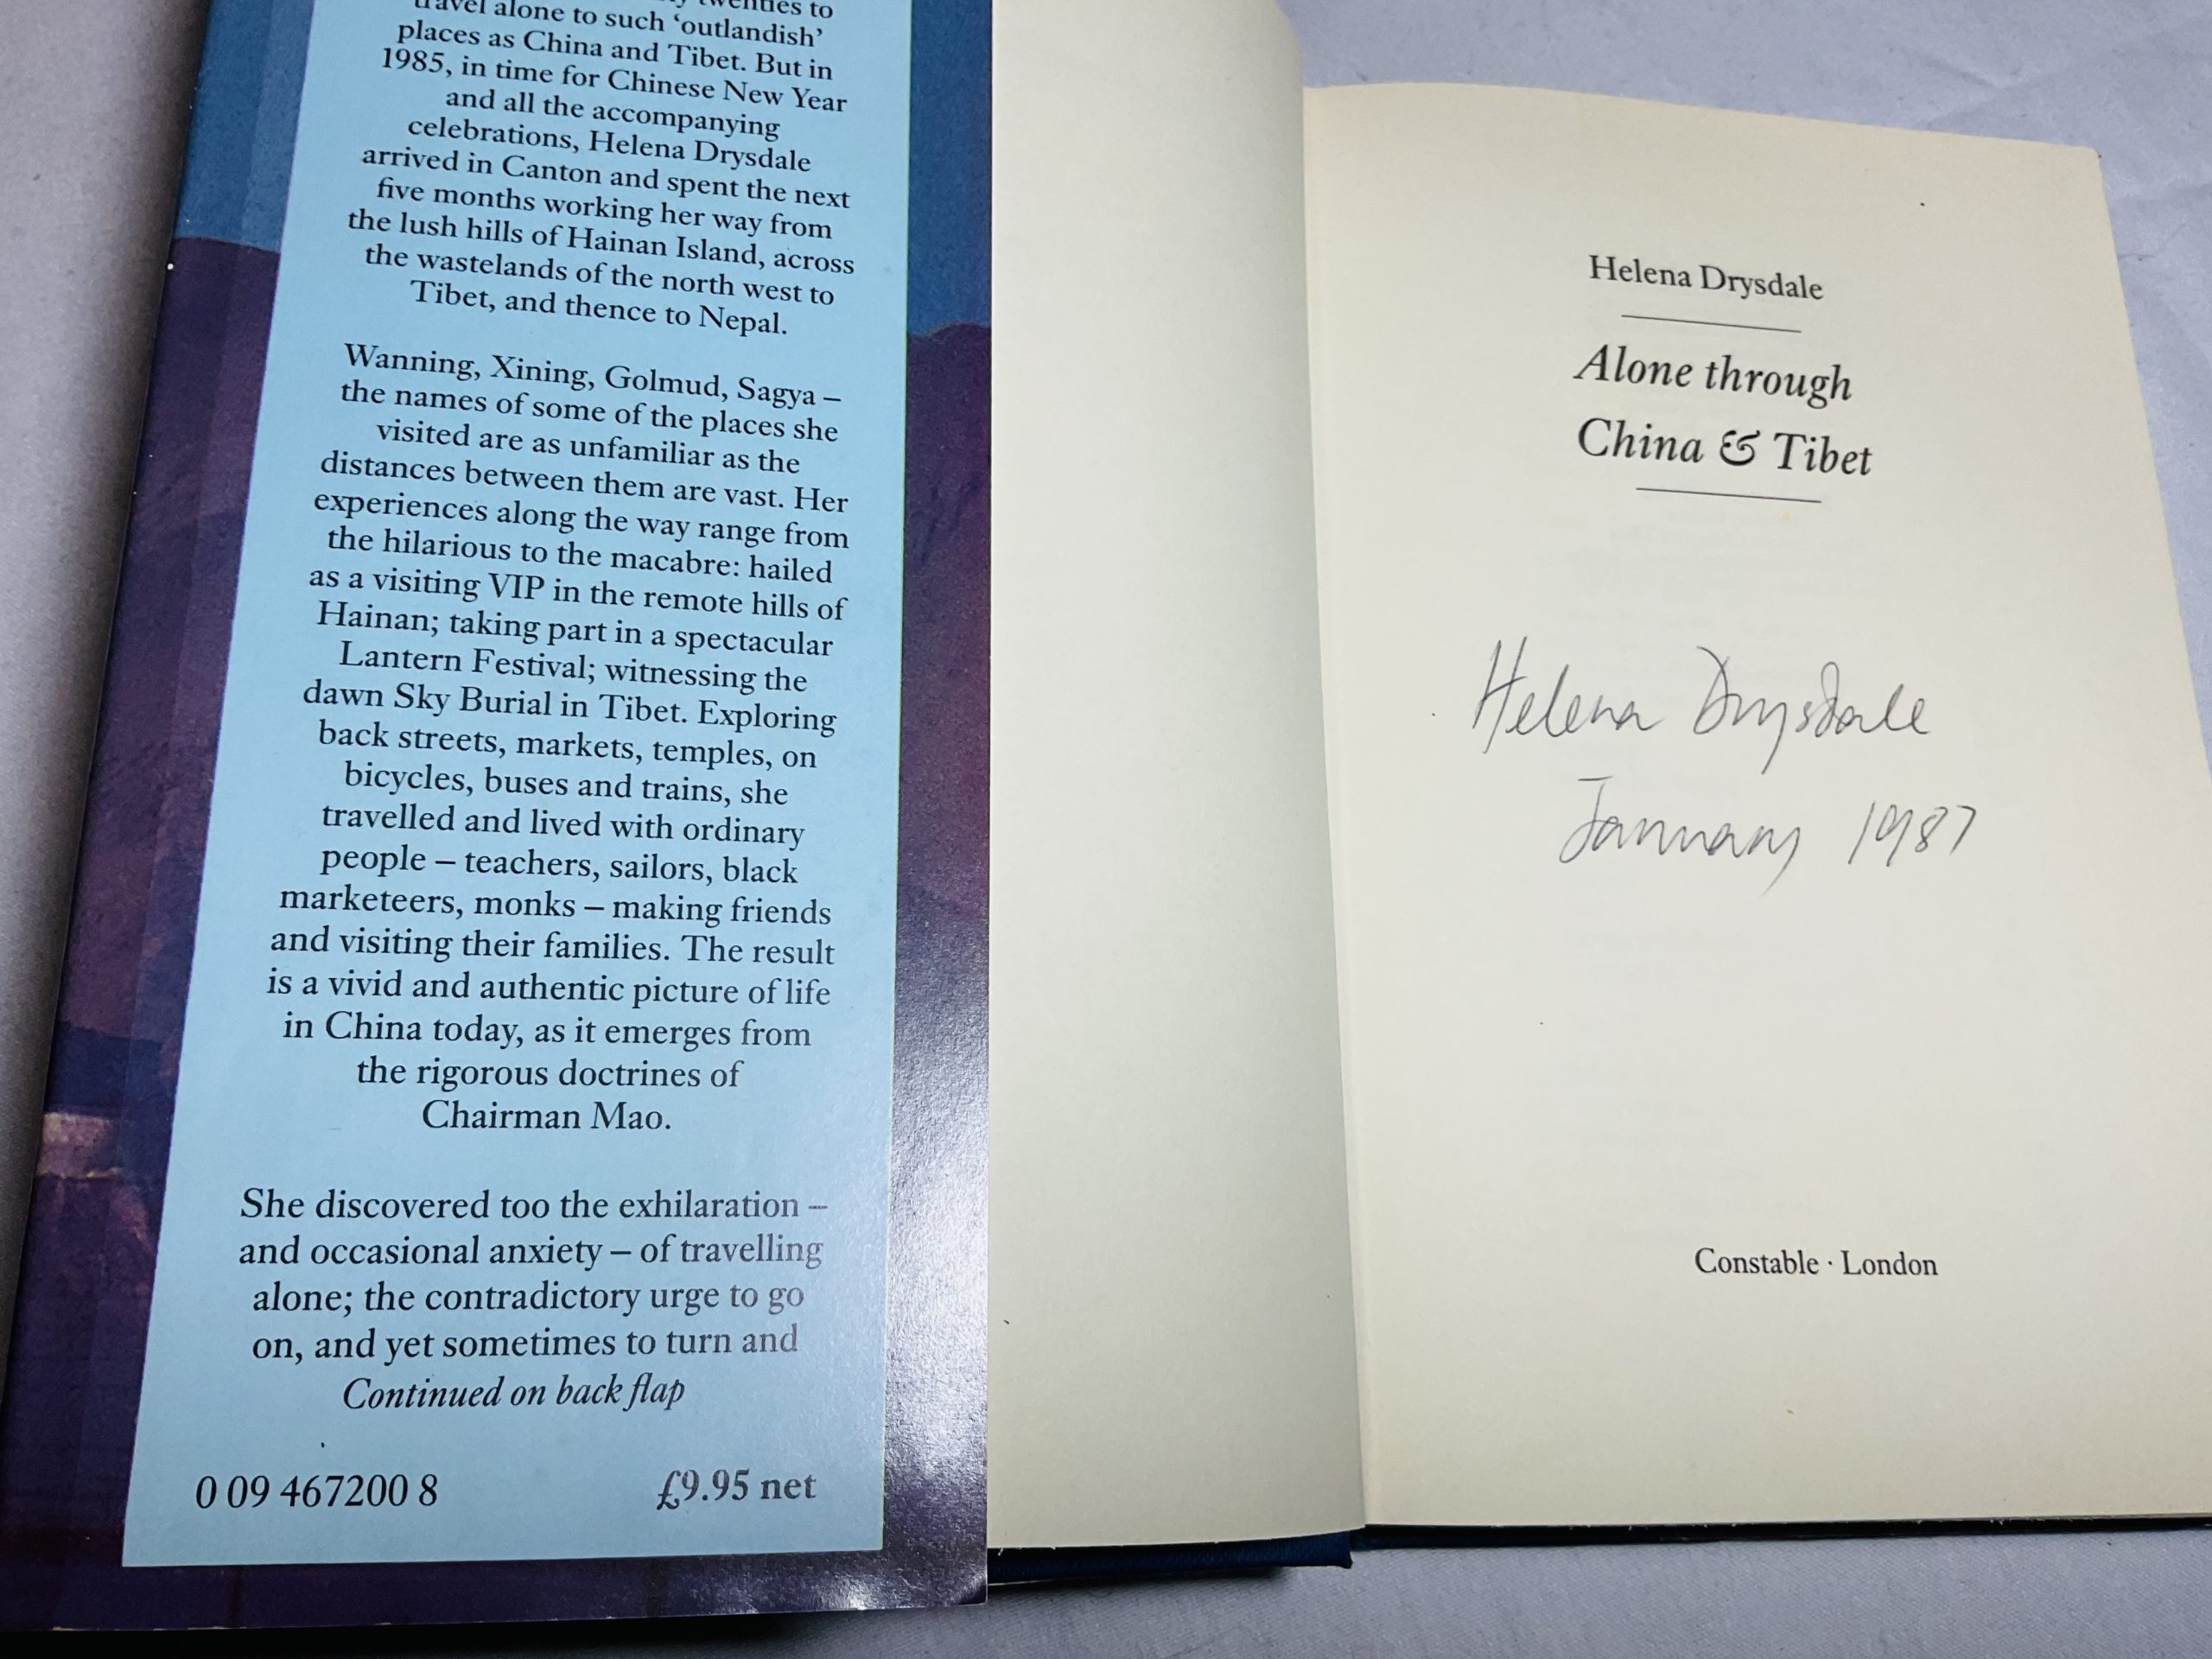 twenties to
travel alone to such ‘outlandish’
places as China and Tibet. But in
1985, in time for Chinese New Year
and all the accompanying
celebrations, Helena Drysdale
arrived in Canton and spent the next
five months working her way from
the lush hills of Hainan Island, across
the wastelands of the north west to
Tibet, and thence to Nepal.
Wanning, Xining, Golmud, Sagya –
the names of some of the places she
visited are as unfamiliar as the
distances between them are vast. Her
experiences along the way range from
the hilarious to the macabre: hailed
as a visiting VIP in the remote hills of
Hainan; taking part in a spectacular
Lantern Festival; witnessing the
dawn Sky Burial in Tibet. Exploring
back streets, markets, temples, on
bicycles, buses and trains, she
travelled and lived with ordinary
people – teachers, sailors, black
marketeers, monks – making friends
and visiting their families. The result
is a vivid and authentic picture of life
in China today, as it emerges from
the rigorous doctrines of
Chairman Mao.
She discovered too the exhilaration –
and occasional anxiety – of travelling
alone; the contradictory urge to go
on, and yet sometimes to turn and
Continued on back flap
0 09 467200 8
£9.95 net
Helena Drysdale
Alone through
China & Tibet
Helena Drysdale
January 1987
Constable · London